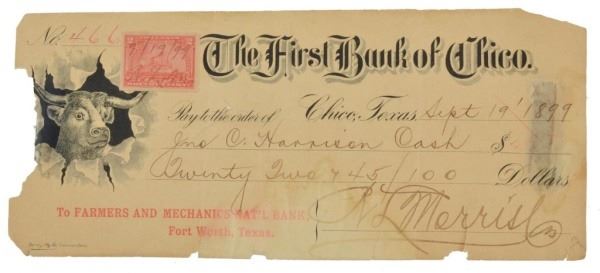 No. 466
9/19/99
The First Bank of Chico.
Chico, Texas, Sept 19' 1899
Pay to the order of
Jno C. Harrison Cash $
Twenty Two & 45/100 Dollars
To FARMERS AND MECHANICS NAT'L BANK,
Fort Worth, Texas.
Morris